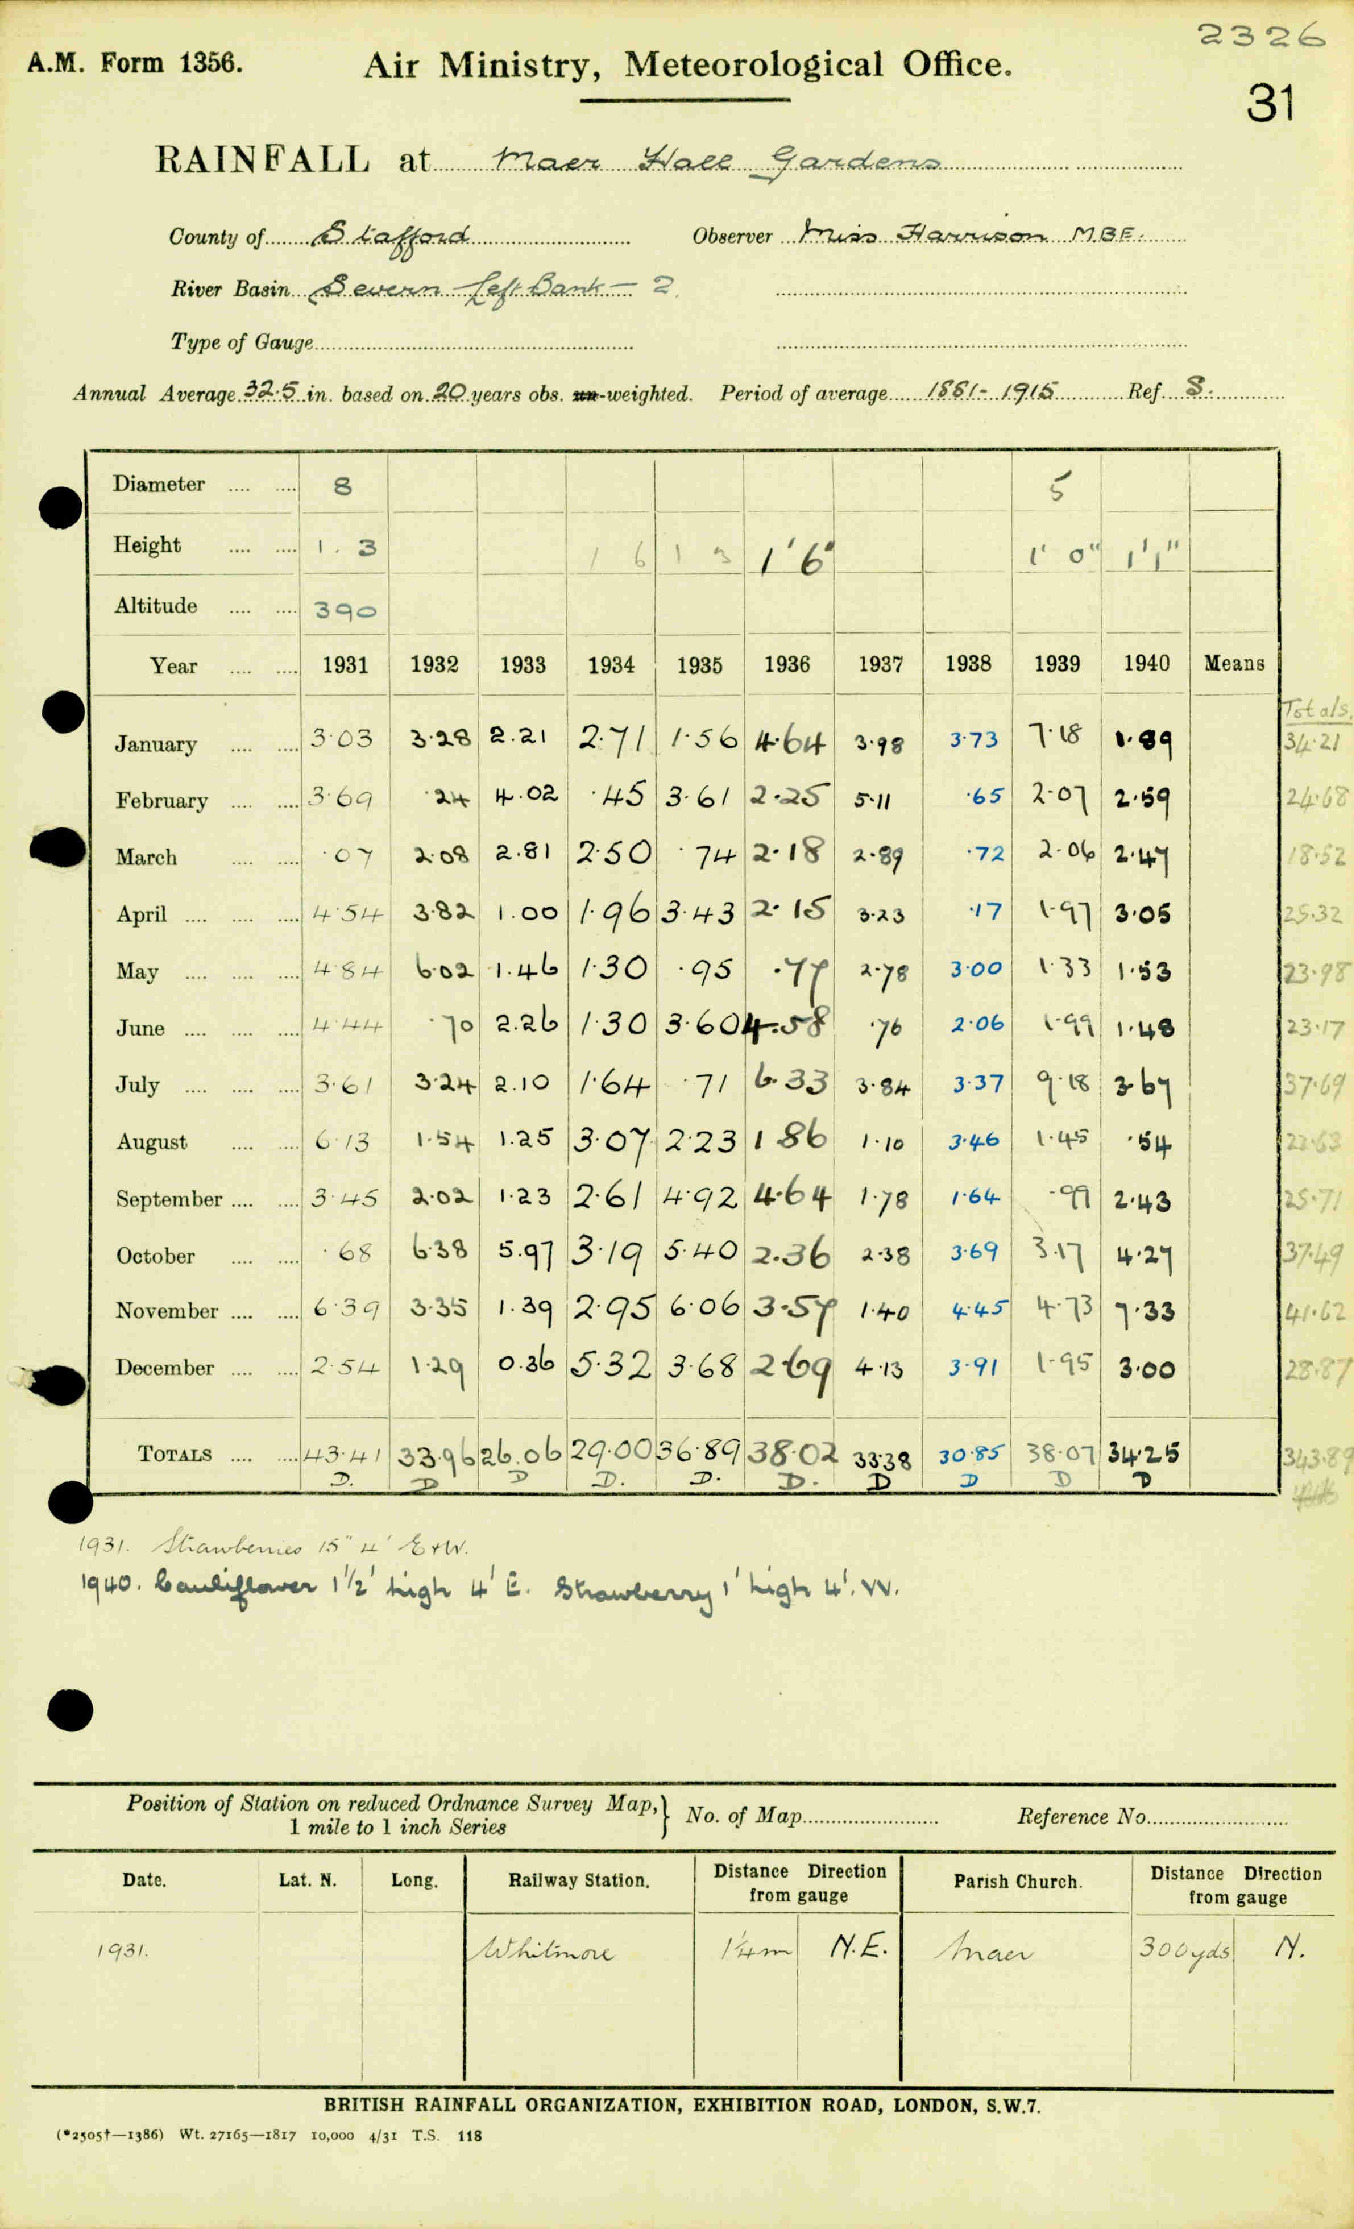 2326
A.M. Form 1356. Air Ministry, Meteorological Office.
31
RAINFALL at Maer Hall Gardens
County of Stafford Observer Miss Harrison MBE.
River Basin Severn Left Bank — 2.
Type of Gauge
Annual Average 32.5 in. based on 20 years obs. un-weighted. Period of average 1881 - 1915 Ref. S.
Diameter 8 5
Height 1 . 3 1 6 1 3 1'6" 1' 0" 1'1"
Altitude 390
Year 1931 1932 1933 1934 1935 1936 1937 1938 1939 1940 Means
Totals.
January 3.03 3.28 2.21 2.71 1.56 4.64 3.98 3.73 7.18 1.89 34.21
February 3.69 .24 4.02 .45 3.61 2.25 5.11 .65 2.07 2.59 24.68
March .07 2.08 2.81 2.50 .74 2.18 2.89 .72 2.06 2.47 18.52
April 4.54 3.82 1.00 1.96 3.43 2.15 3.23 .17 1.97 3.05 25.32
May 4.84 6.02 1.46 1.30 .95 .77 2.78 3.00 1.33 1.53 23.98
June 4.44 .70 2.26 1.30 3.60 4.58 .76 2.06 1.99 1.48 23.17
July 3.61 3.24 2.10 1.64 .71 6.33 3.84 3.37 9.18 3.67 37.69
August 6.13 1.54 1.25 3.07 2.23 1.86 1.10 3.46 1.45 .54 22.63
September 3.45 2.02 1.23 2.61 4.92 4.64 1.78 1.64 .99 2.43 25.71
October .68 6.38 5.97 3.19 5.40 2.36 2.38 3.69 3.17 4.27 37.49
November 6.39 3.35 1.39 2.95 6.06 3.57 1.40 4.45 4.73 7.33 41.62
December 2.54 1.29 0.36 5.32 3.68 2.69 4.13 3.91 1.95 3.00 28.87
TOTALS 43.41 33.96 26.06 29.00 36.89 38.02 33.38 30.85 38.07 34.25 343.89
D. D D D. D. D. D D D D
1931. Strawberries 15" 4' E & W.
1940. Cauliflower 1½' high 4' E. Strawberry 1' high 4'. W.
Position of Station on reduced Ordnance Survey Map, 1 mile to 1 inch Series } No. of Map Reference No.
Date. Lat. N. Long. Railway Station. Distance Direction from gauge Parish Church. Distance Direction from gauge
1931. Whitmore 1¼m N.E. Maer 300yds N.
BRITISH RAINFALL ORGANIZATION, EXHIBITION ROAD, LONDON, S.W.7.
(*2505†—1386) Wt. 27165—1817 10,000 4/31 T.S. 118